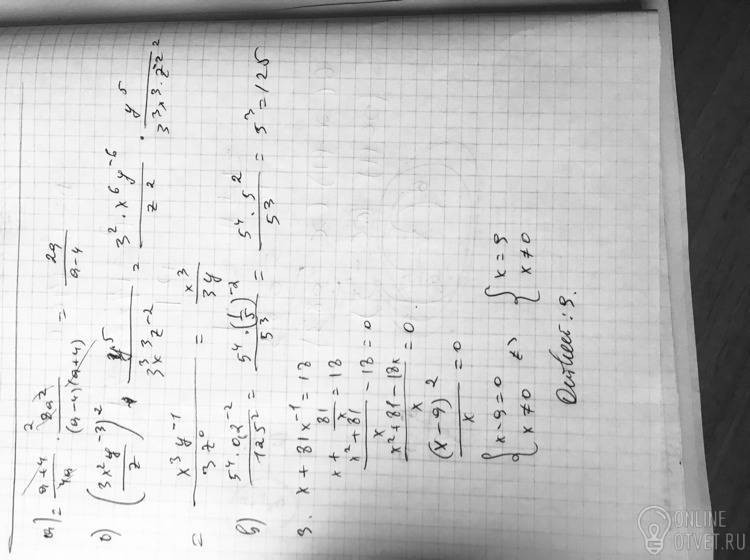 а) = (a+4)/4a · 2 8a²/((a-4)(a+4)) = 2a/(a-4)
б) (3x²y⁻³/z)² · y⁵/(3³x³z⁻²) = (3²·x⁶y⁻⁶)/z² · y⁵/(3³x³·z²)
= x³y⁻¹/3z⁰ = x³/3y
в) (5⁴·0,2⁻²)/125² = (5⁴·(1/5)⁻²)/5³ = (5⁴·5²)/5³ = 5³ = 125
3. x + 81x⁻¹ = 18
x + 81/x = 18
(x²+81)/x - 18 = 0
(x²+81-18x)/x = 0.
(x-9)²/x = 0
{x-9=0 {x=9
{x≠0 => {x≠0
Ответ: 9.
ONLINE
OTVET.RU